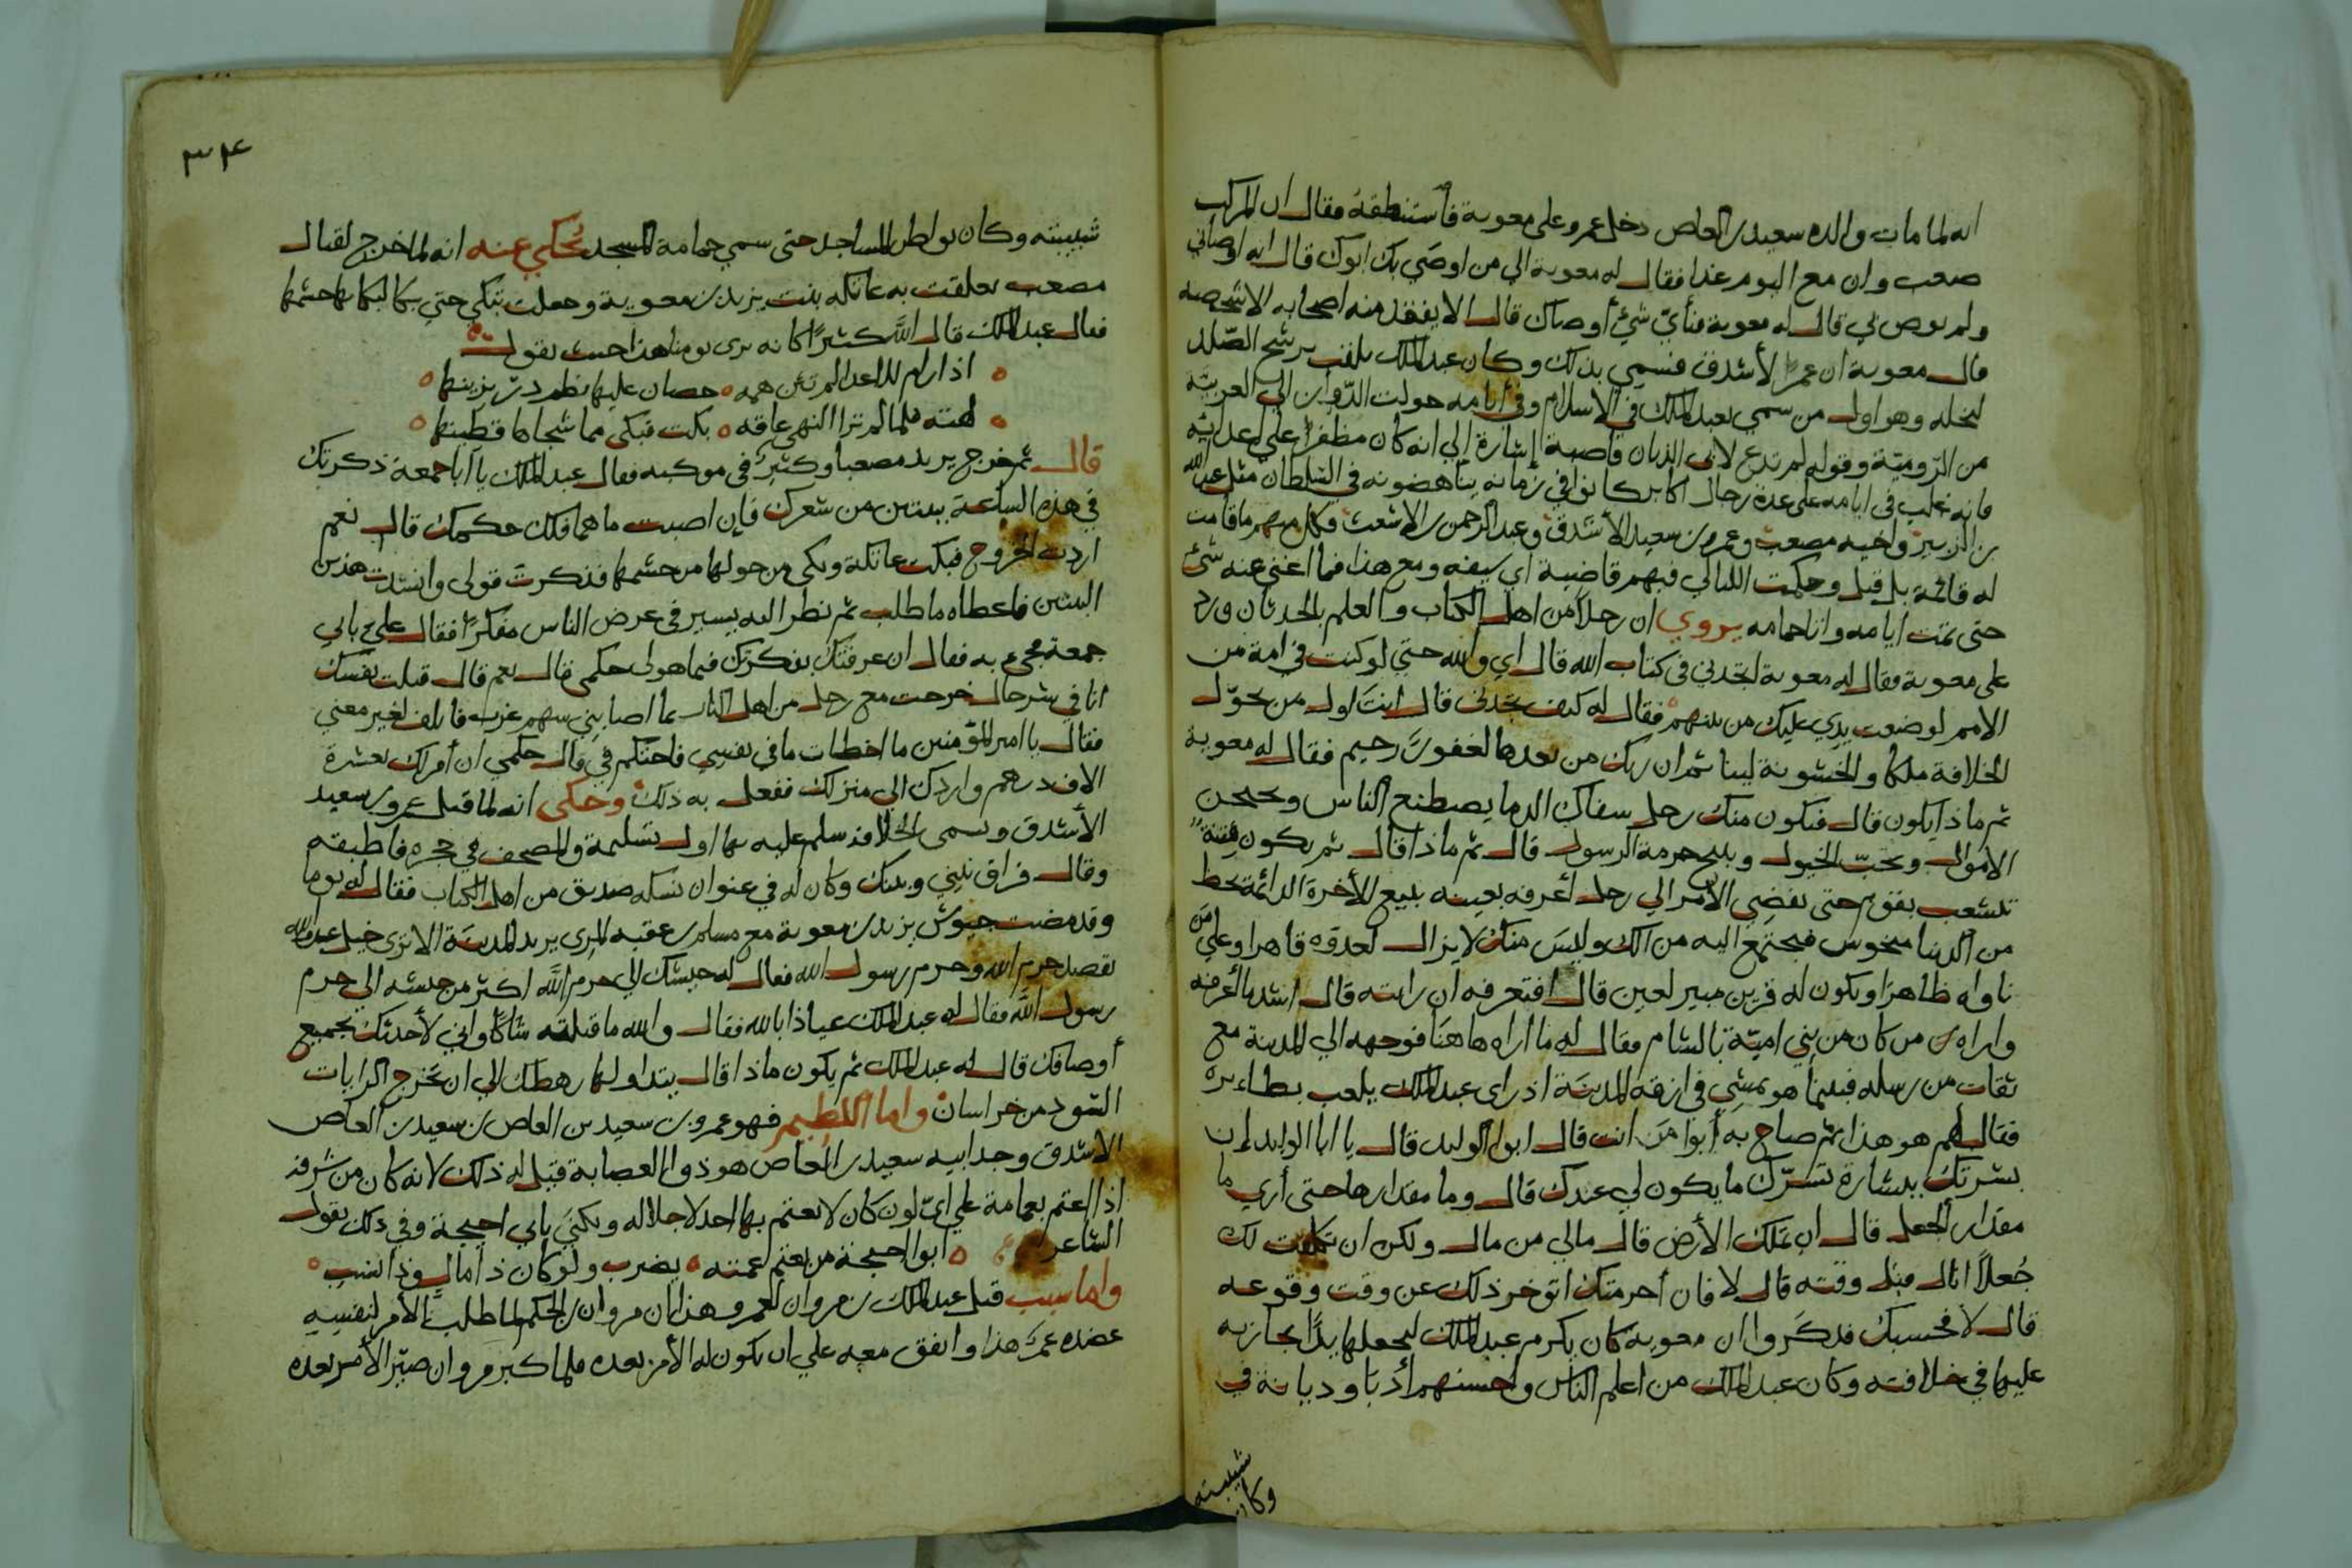 انه لما مات والده سعيد بن العاص دخل عمرو على معوية فاستنطقه فقال ان اول مركب
صعب وان مع اليوم غدا فقال له معوية الي من اوصي بك ابوك قال انه اوصاني
ولم يوص بي قال له معوية فبأيّ شئ أوصاك قال الا يفقد منه اصحابه الا شخصه
قال معوية ان عمرا لأشدق فسمي بذلك وكان عبد الملك يلقب برشح الصّلد
لبخله وهو اول من سمي بعبد الملك في الاسلام وفي أيامه حولت الدواوين الي العربية
من الروميّة وقوله لم تدع لابي الذبان قاصبة إشارة إلي انه كان مظفرا على اعدائه
فانه غلب في ايامه على عدة رجال أكابر كانوا في زمانه يناهضونه في السّلطان مثل عبد الله
بن الزبير واخيه مصعب وعمرو بن سعيد الأشدق وعبد الرحمن بن الاشعث فكل منهم ما قامت
له قائمة بل قبل وحكمت الليالي فيهم قاضية اي سيفه ومع هذا فما اغني عنه شئ
حتى تمت أيامه واتاه حمامه يروي ان رجلاً من اهل الكتاب والعلم بالحدثان ورد
على معوية فقال له معوية اتجدني في كتاب الله قال اي والله حتي لو كنت في امة من
الامم لوضعت يدي عليك من بينهم فقال له كيف تجدني قال انت اول من يحوّل
الخلافة ملكا والخشونة لينا ثم ان ربك من بعدها لغفورٌ رحيم فقال له معوية
ثم ماذا يكون قال فيكون منك رجل سفاك الدما يصطنع الناس ويحجن
الاموال ويجنّب الخيول ويبيح حرمة الرسول قال ثم ماذا قال ثم يكون فتنة
تتشعب بقوم حتى يفضي الأمر الي رجل أعرفه بعينه يبيع الأخرة الدائمة بحظ
من الدنيا مبخوس فيجتمع اليه من الك وليس منك لا يزال لعدوّه قاهرا وعلي من
ناواه ظاهرا ويكون له قرين مبير لعين قال افتعرفه ان رايته قال اشد ما أعرفه
واراه من كان من بني امية بالشام فقال له ما اراه هاهنا فوجهه الي المدينة مع
ثقات من رسله فبينما هو يمشي في ازقة المدينة اذ راى عبد الملك يلعب بطاء يره
فقال لهم هو هذا ثم صاح به أبوا مَن انت قال ابو الوليد قال يا ابا الوليد إن
بشرتك ببشارة تسرّك ما يكون لي عندك قال وما مقدارها حتى أري ما
مقدار الجعل قال ان تملك الأرض قال مالي من مال ولكن ان تكلفت لك
جُعلاً انال قبل وقته قال لا فان أحرمتك اتوخر ذلك عن وقت وقوعه
قال لا فحسبك فذكَروا ان معوية كان يكرم عبد الملك ليجعلها يدًا يجازيه
عليها في خلافته وكان عبد الملك من اعلم الناس واحسنهم أدبًا وديانة في
شبيبته
وكان
٣٤
شبيبته وكان يواظب المساجد حتى سمي حمامة المسجد حُكي عنه انه لما خرج لقتال
مصعب تعلقت به عاتكه بنت يزيد بن معوية وجعلت تبكي حتي بكا لبكائها حشمها
فقال عبد الملك قاتل اللَّه كثيرًا كانه يرى يومنا هذا حيث يقول
اذا رام للاعدا لم تثن همه حصان عليها نظم در يزينها
نهته فلما لم ترا النهي عاقه بكت فبكى مما شجاها قطينها
قال ثم خرج يريد مصعبا وكثير في موكبه فقال عبد الملك يا أبا جمعة ذكرتك
في هذه الساعة ببيتين من شعرك فإن اصبت ما هما فلك حكمك قال نعم
اردت الخروج فبكت عاتكة وبكى من حولها من حشمها فذكرت قولى وانشدت هذين
البيتين فاعطاه ما طلب ثم نظر اليه يسير في عرض الناس مفكرًا فقال علي بابي
جمعة فجيء به فقال ان عرفتك بفكرتك فما هو لي حكمي قال نعم قال قلت نفسك
انا في شر حال خرجت مع رجل من اهل النار بما اصابني سهم غرب فاتلف لغير معني
فقال يا امير المؤمنين ما اخطات ما في نفسي فاحتكم في قال حكمي ان أمر لك بعشرة
الاف درهم واردك الي منزلك ففعل به ذلك وحكى انه لما قبل عمرو بن سعيد
الأشدق وتسمى الخلافة سلم عليه بها اول تسليمة والمصحف في حجره فاطبقه
وقال فراق بيني وبينك وكان له في عنوان نسكه صديق من اهل الكتاب فقال له يوما
وقد مضت جيوش يزيد بن معوية مع مسلم بن عقبه المري يريد المدينة الا ترى خيل عدو الله
تقصد حرم الله وحرم رسول الله فقال له جيشك الي حرم اللَّه اكثر من جيشه الي حرم
رسول اللَّه فقال له عبد الملك عياذا بالله فقال والله ما قبلته شاكًا واني لأحدثك بجميع
أوصافك قال له عبد الملك ثم يكون ماذا قال يتداولها رهطك الي ان تخرج الرايات
السّود من خراسان واما اللطيم فهو عمرو بن سعيد بن العاص بن سعيد بن العاص
الاشدق وجد ابيه سعيد بن العاص هو ذوا العصابة قيل له ذلك لانه كان من شرفه
اذا اعتم بعمامة علي ايّ لون كان لا يعتم بها احد لاجلاله ويكنى بابي احيحة وفي ذلك يقول
الشاعر ابو احيحة من يعتم عمته يضرب ولو كان ذا مال وذا نسب
واما سبب قتل عبد الملك بن مروان لعمرو هذا ان مروان بن الحكم لما طلب الأمر لنفسه
عضده عمرو هذا واتفق معه علي ان يكون له الأمر بعده فلما كبر مروان صيّر الأمر بعده